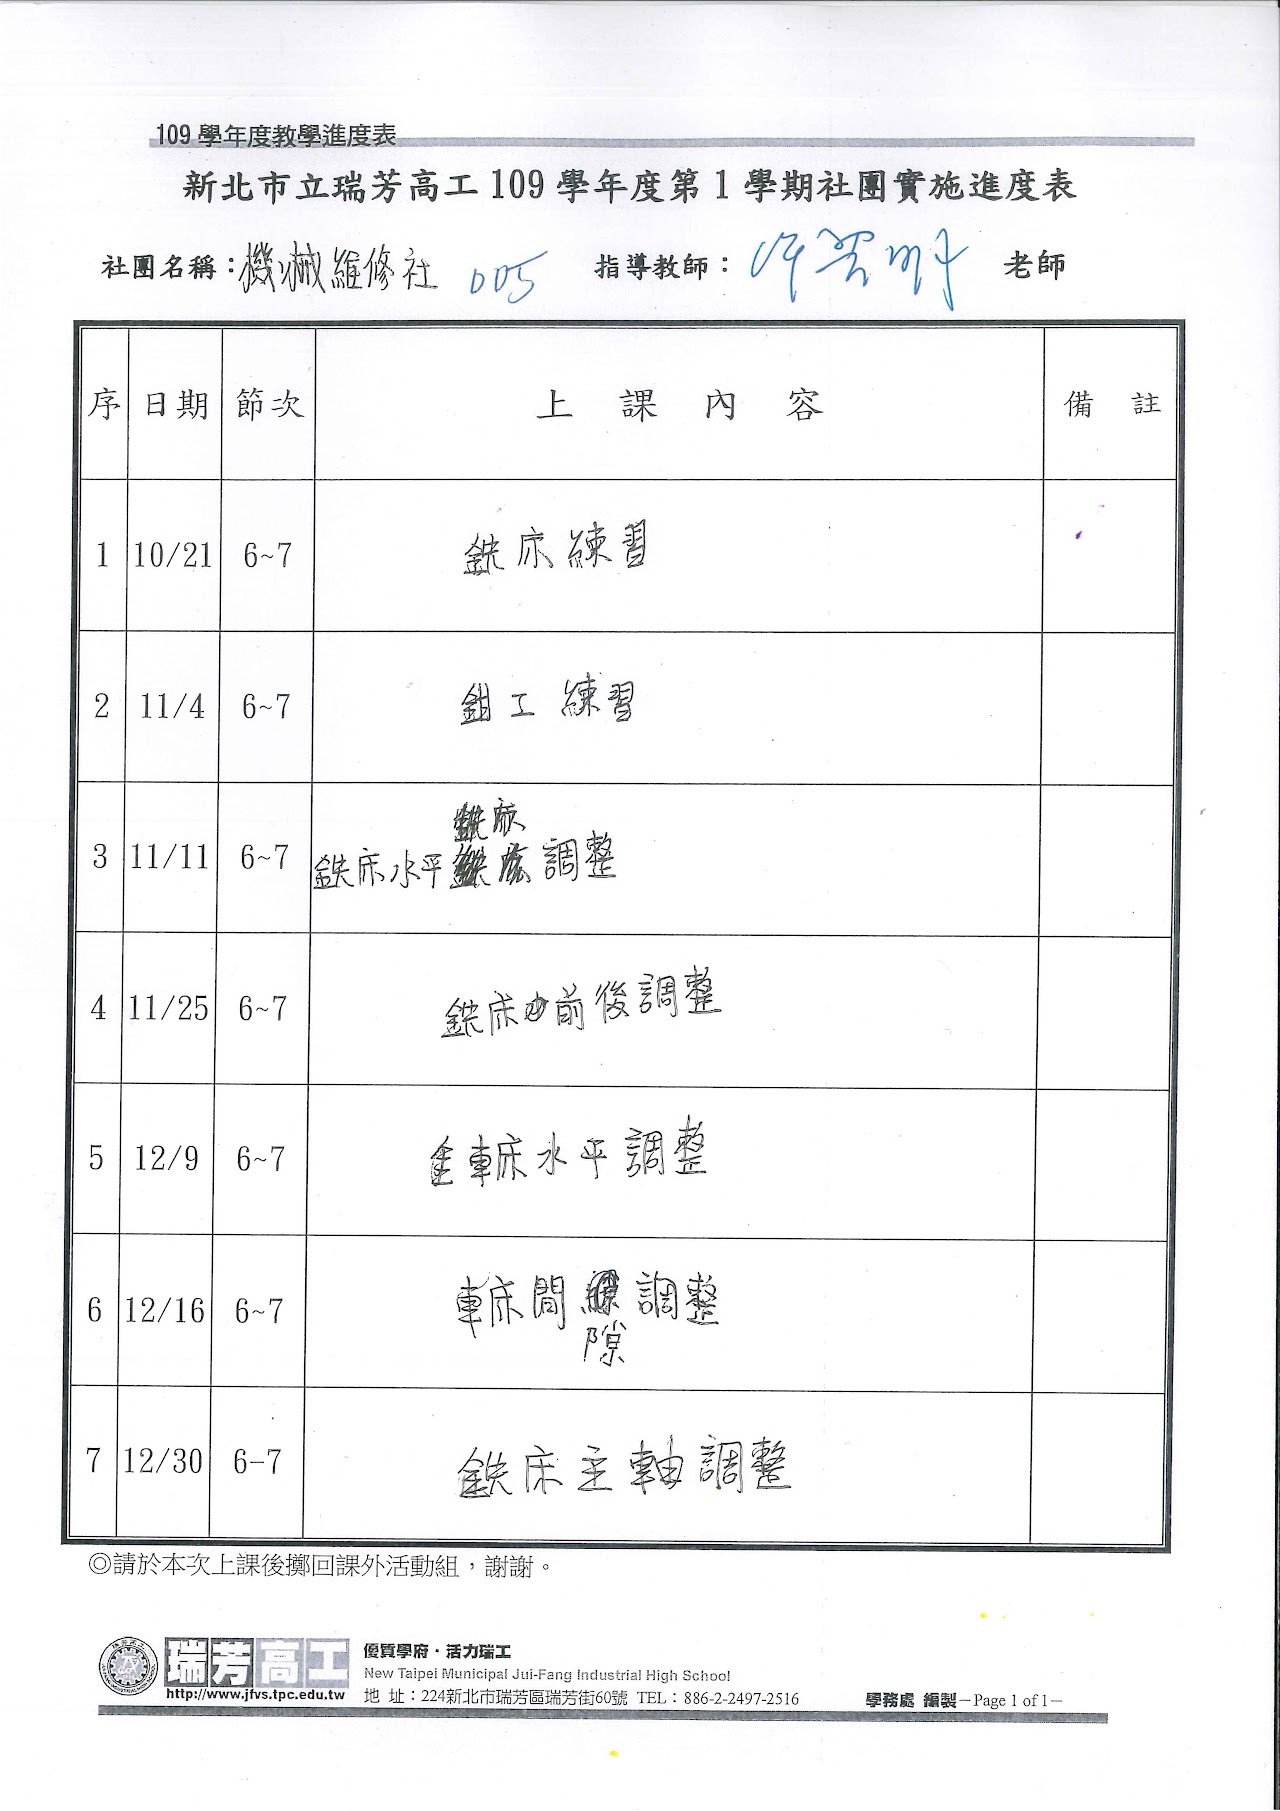 109 學年度教學進度表
新北市立瑞芳高工 109 學年度第 1 學期社團實施進度表
社團名稱：機械維修社 005 指導教師： 老師
序 日期 節次 上 課 內 容 備 註
1 10/21 6~7 銑床練習
2 11/4 6~7 鉗工練習
3 11/11 6~7 銑床水平調整
4 11/25 6~7 銑床前後調整
5 12/9 6~7 車床水平調整
6 12/16 6~7 車床間隙調整
7 12/30 6-7 銑床主軸調整
◎請於本次上課後擲回課外活動組，謝謝。
瑞芳高工
優質學府・活力瑞工
New Taipei Municipal Jui-Fang Industrial High School
http://www.jfvs.tpc.edu.tw 地 址：224新北市瑞芳區瑞芳街60號 TEL：886-2-2497-2516 學務處 編製－Page 1 of 1－